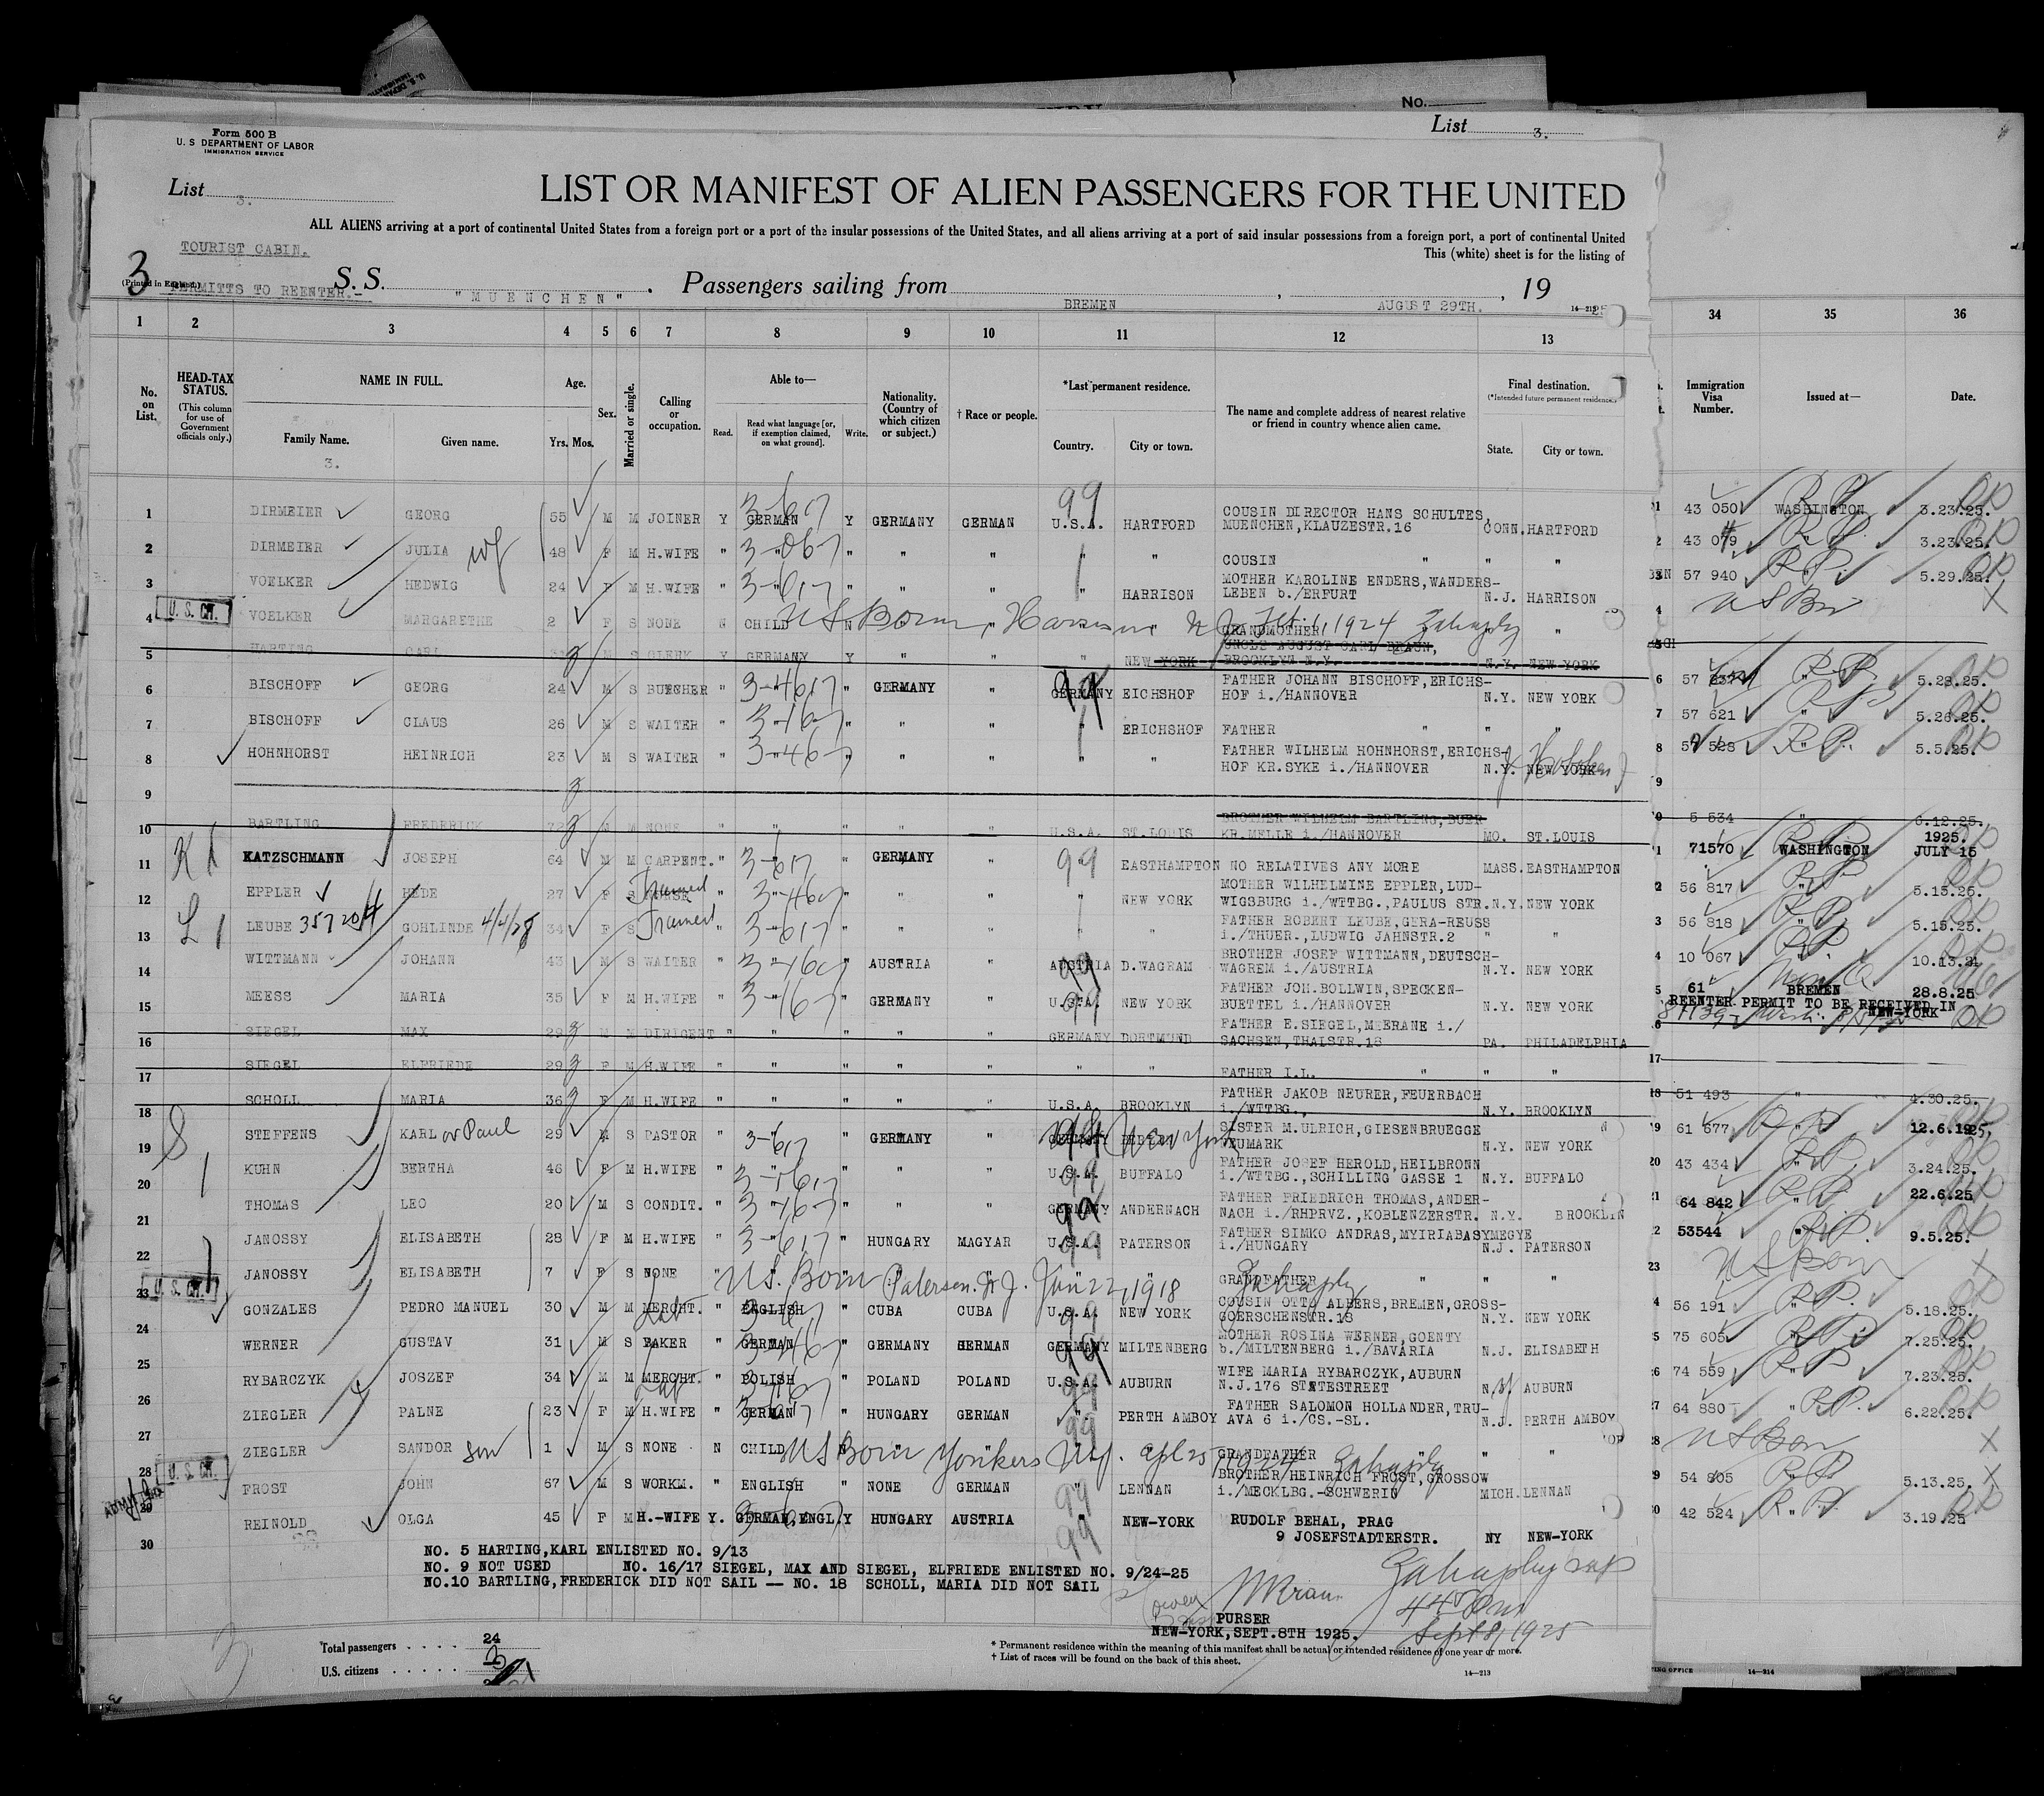 No.
List 3.
Form 500 B
U. S DEPARTMENT OF LABOR
IMMIGRATION SERVICE
List 3.
LIST OR MANIFEST OF ALIEN PASSENGERS FOR THE UNITED
ALL ALIENS arriving at a port of continental United States from a foreign port or a port of the insular possessions of the United States, and all aliens arriving at a port of said insular possessions from a foreign port, a port of continental United
This (white) sheet is for the listing of
TOURIST CABIN.
3 (Printed in England.)
PERMITTS TO REENTER.-
S. S. "MUENCHEN" . Passengers sailing from BREMEN , AUGUST 29TH. , 19 25
14—212
1 2 3 4 5 6 7 8 9 10 11 12 13 34 35 36
No. on List.
HEAD-TAX STATUS.
(This column for use of Government officials only.)
NAME IN FULL.
Family Name. Given name.
3.
Age.
Yrs. Mos.
Sex.
Married or single.
Calling or occupation.
Able to—
Read. Read what language [or, if exemption claimed, on what ground]. Write.
Nationality. (Country of which citizen or subject.)
† Race or people.
*Last permanent residence.
Country. City or town.
The name and complete address of nearest relative or friend in country whence alien came.
Final destination.
(*Intended future permanent residence.)
State. City or town.
Immigration Visa Number.
Issued at—
Date.
1 DIRMEIER GEORG 55 M M JOINER Y GERMAN Y GERMANY GERMAN 99 U.S.A. HARTFORD COUSIN DIRECTOR HANS SCHULTES, MUENCHEN,KLAUZESTR.16 CONN. HARTFORD 43 050 WASHINGTON 3.23.25.
2 DIRMEIER JULIA wf 48 F M H.WIFE " " " " " " " COUSIN " " " 43 079 3.23.25.
3 VOELKER HEDWIG 24 F M H.WIFE " " " " " " HARRISON MOTHER KAROLINE ENDERS,WANDERS-LEBEN b./ERFURT N.J. HARRISON 57 940 5.29.25.
U. S. CIT.
4 VOELKER MARGARETHE 2 F S NONE N CHILD N US Born, Harrison N J Feb. 1, 1924 GRANDMOTHER " US Born X
5 HARTING CARL M S CLERK Y GERMANY Y " " " NEW YORK UNCLE AUGUST CARL BRAUN, BROOKLYN N.Y. N.Y. NEW YORK
6 BISCHOFF GEORG 24 M S BUECHER " " " GERMANY " GERMANY EICHSHOF FATHER JOHANN BISCHOFF,ERICHS-HOF i./HANNOVER N.Y. NEW YORK 5.28.25.
7 BISCHOFF CLAUS 26 M S WAITER " " " " " " ERICHSHOF FATHER " " " 57 621 5.26.25.
8 HOHNHORST HEINRICH 23 M S WAITER " " " " " " " FATHER WILHELM HOHNHORST,ERICHS-HOF KR.SYKE i./HANNOVER N.Y. NEW YORK Hoboken 528 5.5.25.
9
10 BARTLING FREDERICK 72 M M NONE " " " " " U.S.A. ST.LOUIS BROTHER WILHELM BARTLING,BUER KR.MELLE i./HANNOVER MO. ST.LOUIS 5 534 " 6.12.25.
11 KATZSCHMANN JOSEPH 64 M M CARPENT. " " " GERMANY " 99 EASTHAMPTON NO RELATIVES ANY MORE MASS. EASTHAMPTON 71570 WASHINGTON 1925. JULY 15
12 EPPLER HEDE 27 F S NURSE Trained " " " " " " NEW YORK MOTHER WILHELMINE EPPLER,LUD-WIGSBURG i./WTTBG.,PAULUS STR. N.Y. NEW YORK 56 817 " 5.15.25.
13 LEUBE 357204 GOHLINDE 4/4/28 34 F S Trained " " " " " " " FATHER ROBERT LEUBE,GERA-REUSS i./THUER.,LUDWIG JAHNSTR.2 " " 56 818 5.15.25.
14 WITTMANN JOHANN 43 M S WAITER " " " AUSTRIA " AUSTRIA D.WAGRAM BROTHER JOSEF WITTMANN,DEUTSCH-WAGREM i./AUSTRIA N.Y. NEW YORK 10 067 10.13.24
15 MEESS MARIA 35 F M H.WIFE " " " GERMANY " U.S.A. NEW YORK FATHER JOH.BOLLWIN,SPECKEN-BUETTEL i./HANNOVER N.Y. NEW YORK 61 BREMEN 28.8.25
REENTER PERMIT TO BE RECEIVED IN NEW-YORK
16 SIEGEL MAX 29 M M DIRIGENT " " " " " GERMANY DORTMUND FATHER E.SIEGEL,MEERANE i./SACHSEN,THALSTR.18 PA. PHILADELPHIA
17 SIEGEL ELFRIEDE 29 F M H.WIFE " " " " " " " FATHER I.L. " " "
18 SCHOLL MARIA 36 F M H.WIFE " " " " " U.S.A. BROOKLYN FATHER JAKOB NEURER,FEUERBACH i./WTTBG., N.Y. BROOKLYN 51 493 " 4.30.25.
19 STEFFENS KARL or Paul 29 M S PASTOR " " GERMANY " New York SISTER M.ULRICH,GIESENBRUEGGE NEUMARK N.Y. NEW YORK 61 677 " 12.6.1925,
20 KUHN BERTHA 46 F M H.WIFE " " " " " U.S.A. BUFFALO FATHER JOSEF HEROLD,HEILBRONN i./WTTBG.,SCHILLING GASSE 1 N.Y. BUFFALO 43 434 " 3.24.25.
21 THOMAS LEO 20 M S CONDIT. " " " " " GERMANY ANDERNACH FATHER FRIEDRICH THOMAS,ANDER-NACH i./RHPRVZ.,KOBLENZERSTR. N.Y. BROOKLIN 64 842 22.6.25
22 JANOSSY ELISABETH 28 F M H.WIFE " " " HUNGARY MAGYAR U.S.A. PATERSON FATHER SIMKO ANDRAS,MYIRIABASYMEGYE i./HUNGARY N.J. PATERSON 53544 9.5.25.
U. S. CIT.
23 JANOSSY ELISABETH 7 F S NONE US. Born Paterson. N J. Jun 22, 1918 GRANDFATHER " " " US Born X
24 GONZALES PEDRO MANUEL 30 M M MERCHT. " ENGLISH " CUBA CUBA U.S.A. NEW YORK COUSIN OTTO ALBERS,BREMEN,GROSS-GOERSCHENSTR.18 N.Y. NEW YORK 56 191 " 5.18.25.
25 WERNER GUSTAV 31 M S BAKER " GERMAN " GERMANY GERMAN GERMANY MILTENBERG MOTHER ROSINA WERNER,GOENTY b./MILTENBERG i./BAVARIA N.J. ELISABETH 75 605 7.25.25.
26 RYBARCZYK JOSZEF 34 M M MERCHT. " POLISH " POLAND POLAND U.S.A. AUBURN WIFE MARIA RYBARCZYK,AUBURN N.J.176 STATESTREET N.Y. AUBURN 74 559 7.23.25.
27 ZIEGLER PALNE 23 F M H.WIFE " GERMAN " HUNGARY GERMAN " PERTH AMBOY FATHER SALOMON HOLLANDER,TRU-AVA 6 i./CS.-SL. N.J. PERTH AMBOY 64 880 " 6.22.25.
28 ZIEGLER SANDOR son 1 M S NONE N CHILD N US Born Yonkers NY. Apl 25, 1924 GRANDFATHER " " " US Born X
U. S. CIT.
29 FROST JOHN 67 M S WORKM. " ENGLISH " NONE GERMAN " LENNAN BROTHER HEINRICH FROST,GROSSOW i./MECKLBG.-SCHWERIN MICH. LENNAN 54 805 5.13.25.
30 REINOLD OLGA 45 F M H.-WIFE Y. GERMAN,ENGL Y HUNGARY AUSTRIA 99 NEW-YORK RUDOLF BEHAL, PRAG 9 JOSEFSTADTERSTR. NY NEW-YORK 42 524 " 3.19.25
NO. 5 HARTING,KARL ENLISTED NO. 9/13
NO. 9 NOT USED NO. 16/17 SIEGEL, MAX AND SIEGEL, ELFRIEDE ENLISTED NO. 9/24-25
NO.10 BARTLING,FREDERICK DID NOT SAIL -- NO. 18 SCHOLL, MARIA DID NOT SAIL
PURSER
NEW-YORK,SEPT.8TH 1925.
Sept 8/1925
Total passengers . . . . 24
U.S. citizens . . . . . 3
* Permanent residence within the meaning of this manifest shall be actual or intended residence of one year or more.
† List of races will be found on the back of this sheet.
14—213
14—214